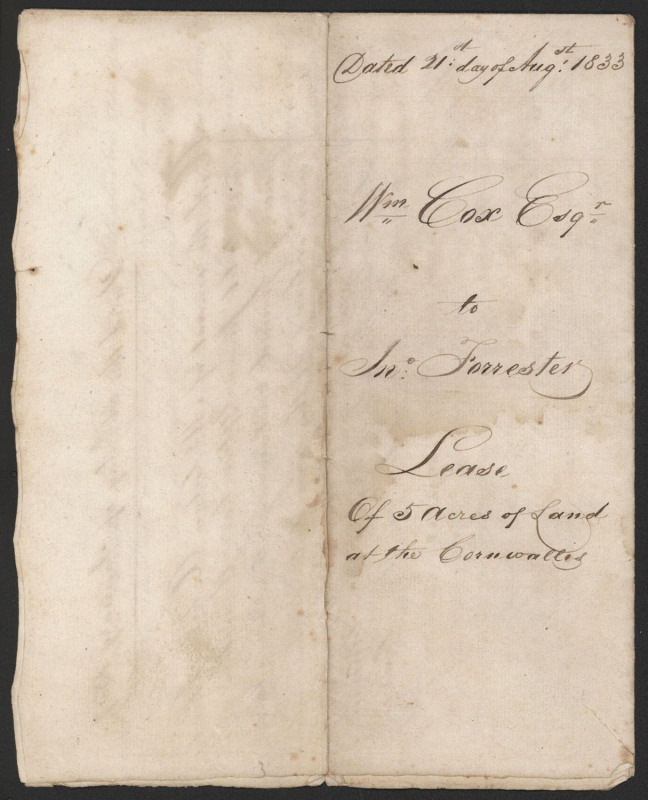 Dated 21st day of Augst 1833
Wm Cox Esqr
to
Jno Forrester
Lease
Of 5 Acres of Land
at the Cornwallis